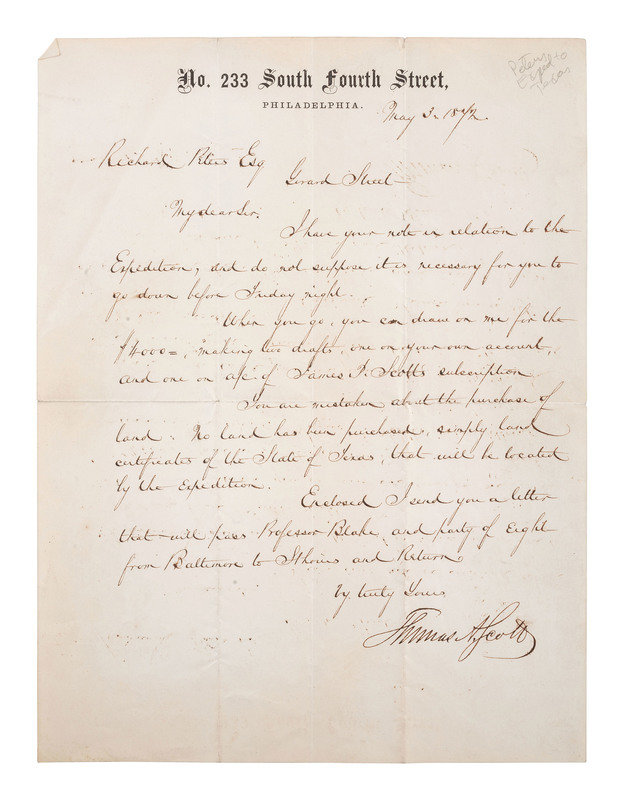 No. 233 South Fourth Street,
PHILADELPHIA.
May 3. 1872.
Peters
Exped to
Texas
Richard Peters Esq
Girard Street
My dear Sir,
I have your note in relation to the
Expedition, and do not suppose it is necessary for you to
go down before Friday night.
When you go, you can draw on me for the
$4000=, making two drafts, one on your own account,
and one on a/c of James P. Scott's subscription
You are mistaken about the purchase of
land. No land has been purchased, simply land
certificates of the State of Texas, that will be located
by the Expedition.
Enclosed I send you a letter
that will pass Professor Blake and party of Eight
from Baltimore to St Louis and Return
Vy truly Yours
Thomas A. Scott